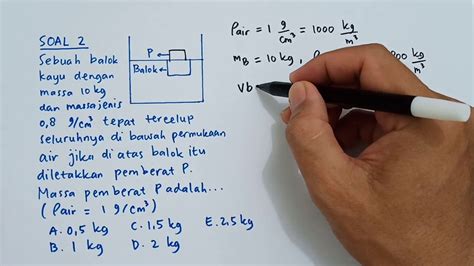 SOAL 2
Sebuah balok
kayu dengan
massa 10 kg
dan massa jenis
0,8 g/cm³ tepat tercelup
seluruhnya di bawah permukaan
air jika di atas balok itu
diletakkan pemberat P.
Massa pemberat P adalah...
(ρair = 1 g/cm³)
A. 0,5 kg C. 1,5 kg E. 2,5 kg
B. 1 kg D. 2 kg
P
Balok
ρair = 1 g/cm³ = 1000 kg/m³
mB = 10 kg, 00 kg/m³
Vb